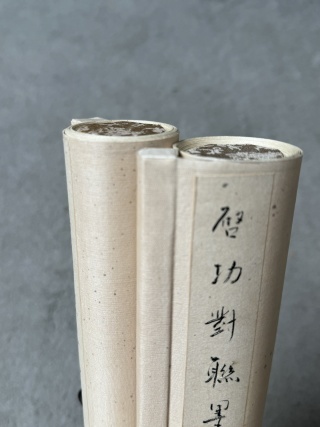 啓功對聯墨